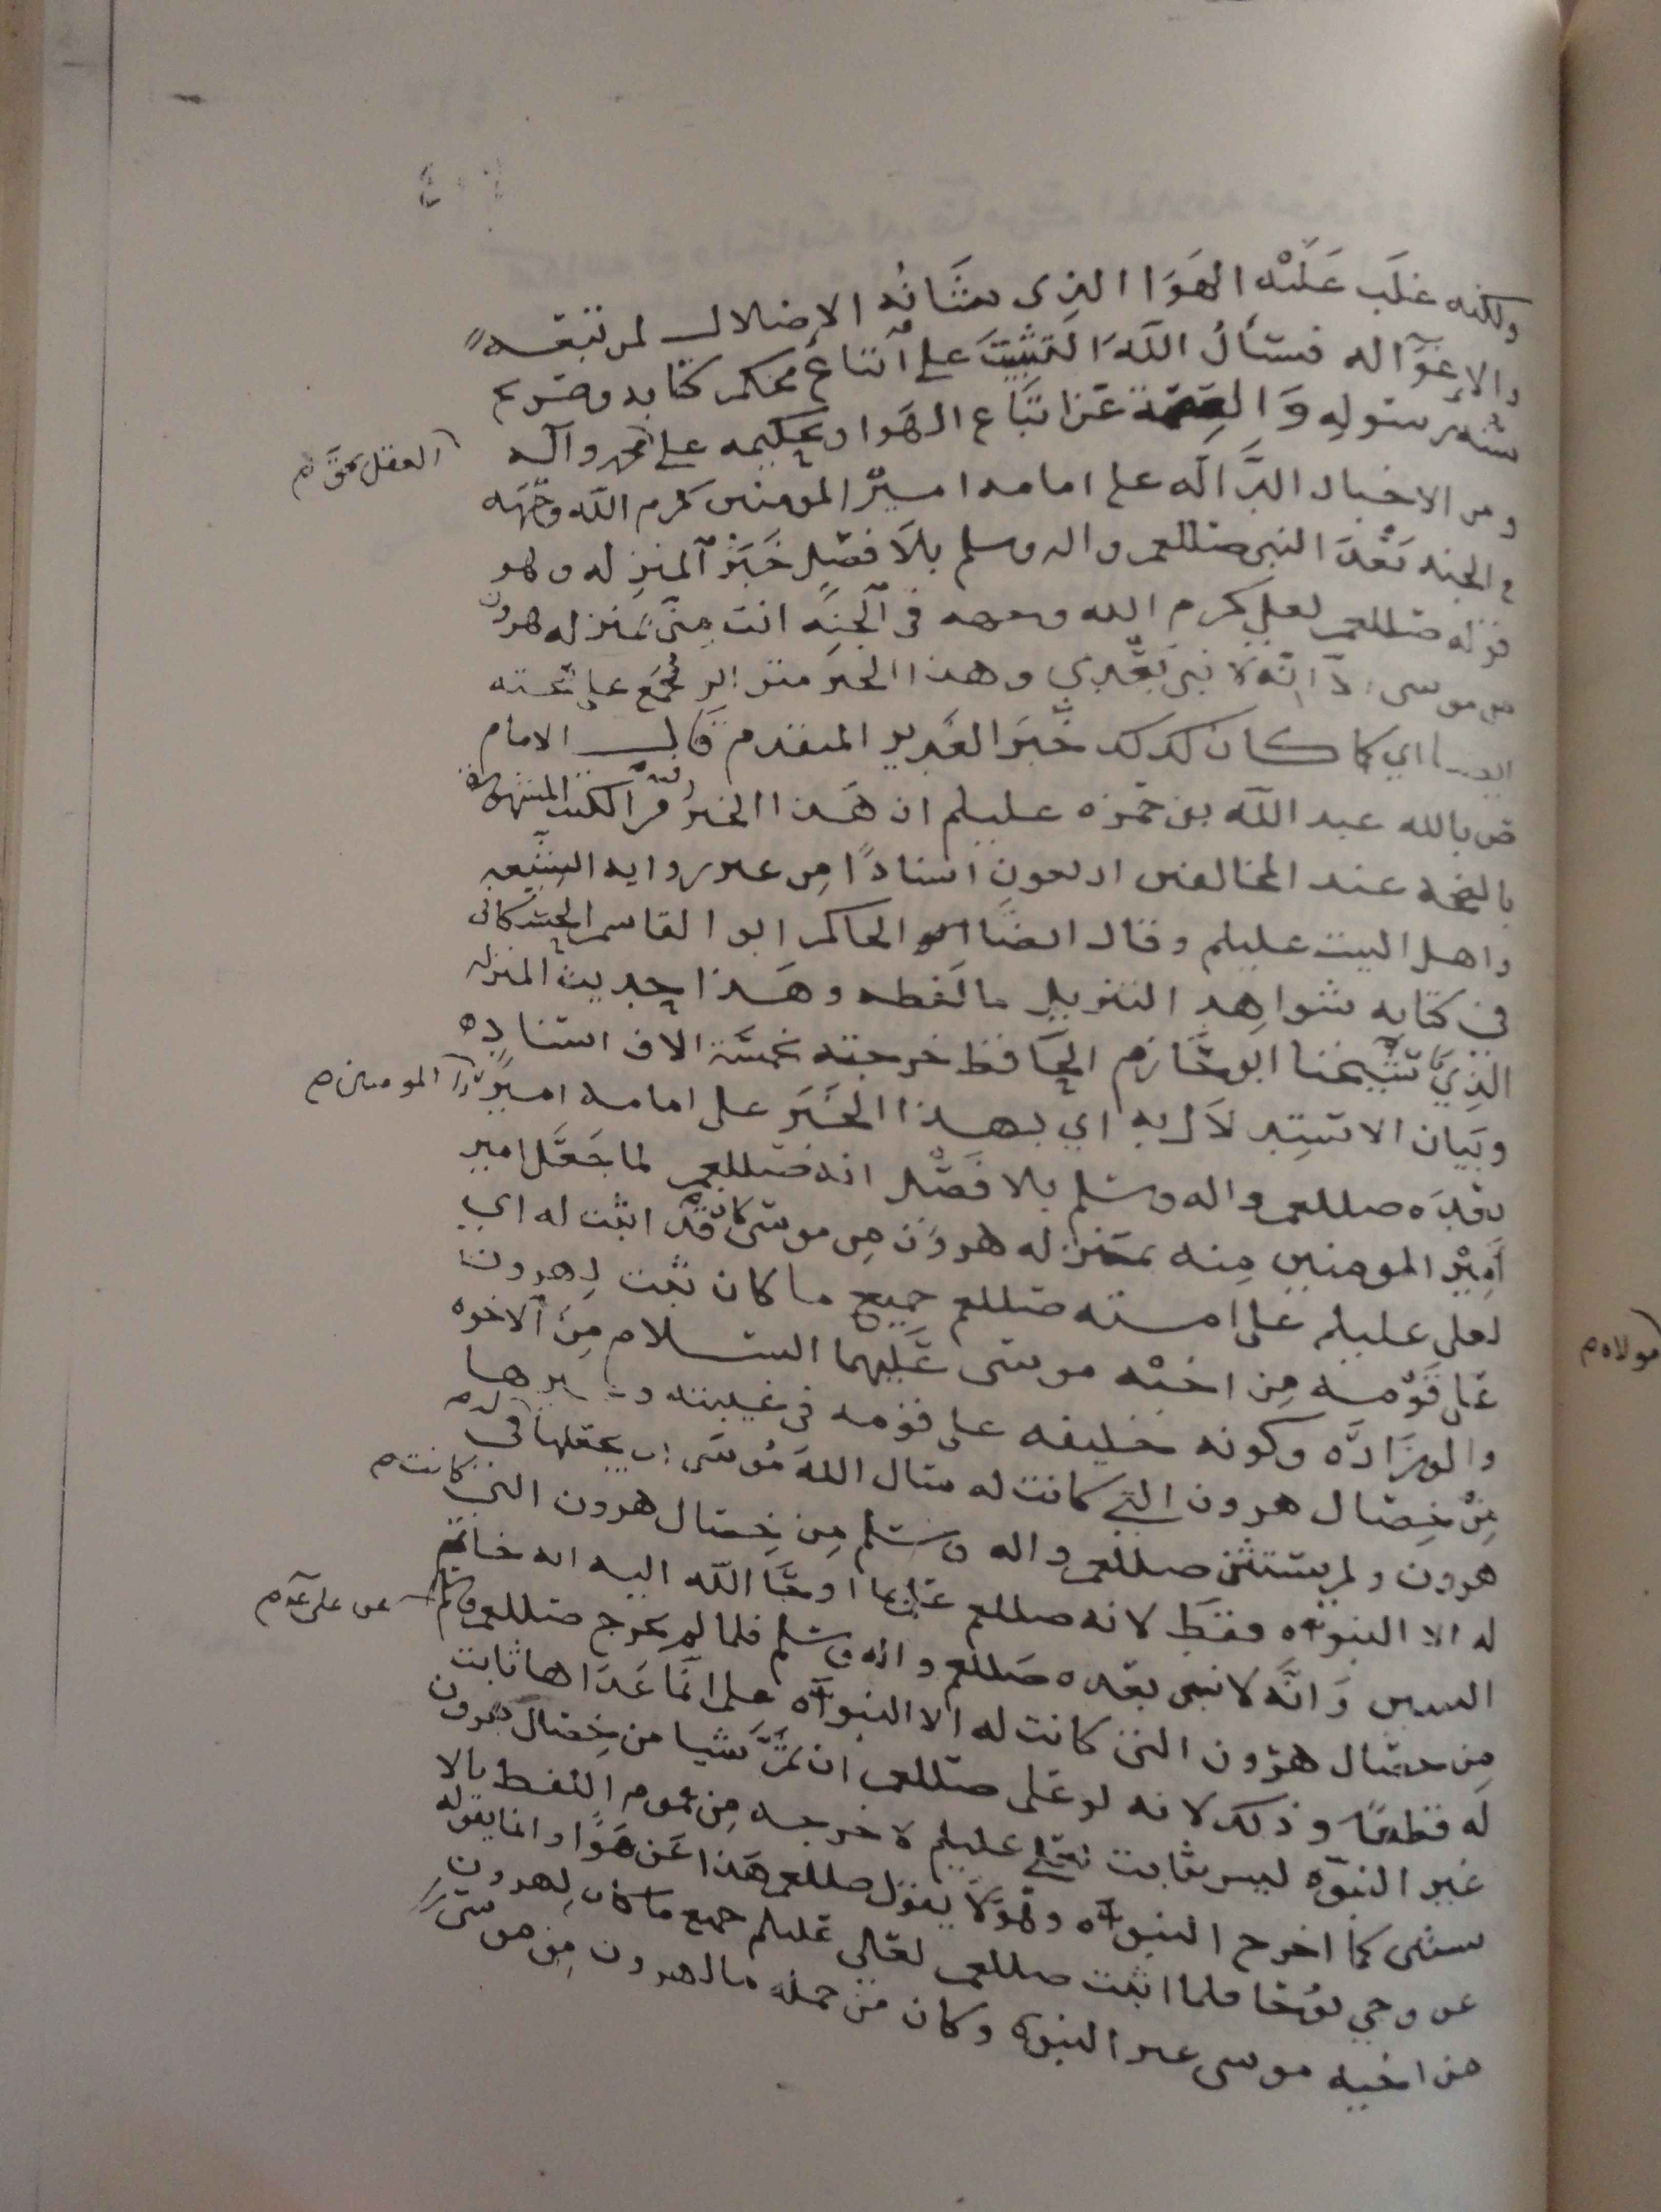 ولكنه غلب عليه الهوا الذى شانه الاضلال لمن تبعه
والاغوا له فنسأل الله التثبيت على اتباع محكم كتابه وصريح
سنة رسوله والعصمة عن اتباع الهوا وتحكيمه على محمد وآله
العقل بحق م
ومن الاخبار الدالة على امامه امير المومنين كرم الله وجهه
في الجنه بعد النبي صللعم واله وسلم بلا فصل خبر المنزله وهو
قوله صللعم لعلي كرم الله وجهه في الجنه انت مني بمنزله هرون
من موسى الا انه لا نبي بعدي وهذا الخبر متواتر مجمع على صحته
ايضا اي كما كان كذلك خبر الغدير المتقدم قال الامام
ص بالله عبد الله بن حمزه عليلم ان هذا الخبر في الكتب المشهوره
بالصحه عند المخالفين اربعون اسنادا من غير روايه الشيعه
واهل البيت عليلم وقال ايضا الحاكم ابو القاسم الحسكاني
في كتابه شواهد التنزيل ما لفظه وهذا حديث المنزله
الذي كان شيخنا ابو حازم الحافظ خرجته بخمسة الاف اسناد ه
وبيان الاستدلال به اي بهذا الخبر على امامه امير المومنين م
بعده صللعم واله وسلم بلا فصل انه صللعم لما جعل امير
امير المومنين منه بمنزله هرون من موسى كان قد اثبت له اي
لعلي عليلم على امته صللعم جميع ما كان يثبت لهرون
على قومه من اخيه موسى عليهما السلام من الاخوه
مولاه م
والوزارة وكونه خليفه على قومه في غيبته وغيرها
من خصال هرون التي كانت له سال الله موسى ان يجعلها في
هرون ولم يستثن صللعم واله وسلم من خصال هرون التي كانت م
له الا النبوه فقط لانه صللعم علم بما اوحا الله اليه انه خاتم
النبيين وانه لا نبي بعده صللعم واله وسلم فلما لم يخرج صللعم
عن علي عد م
من خصال هرون التي كانت له الا النبوه علم ان ما عداها ثابت
له قطعا وذلك لانه لو علم صللعم ان ثم شيا من خصال هرون
غير النبوه ليس ثابت لعلي عليلم لاخرجه من عموم اللفظ بالا
ستثنى كما اخرج النبوه وهو لا يقول صللعم هذا عن هوا وانما يقوله
عن وحي يوحا فلما اثبت صللعم لعلي عليلم جميع ما كان لهرون
من اخيه موسى غير النبوه وكان من جمله ما لهرون من موسى